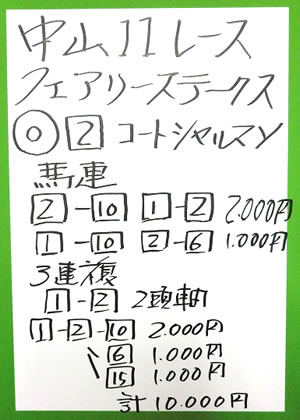 中山11レース
フェアリーステークス
◎ 2 コートシャルマン
馬連
2-10 1-2 2.000円
1-10 2-6 1.000円
3連複
1-2 2頭軸
1-2-10 2.000円
6 1.000円
15 1.000円
計10.000円